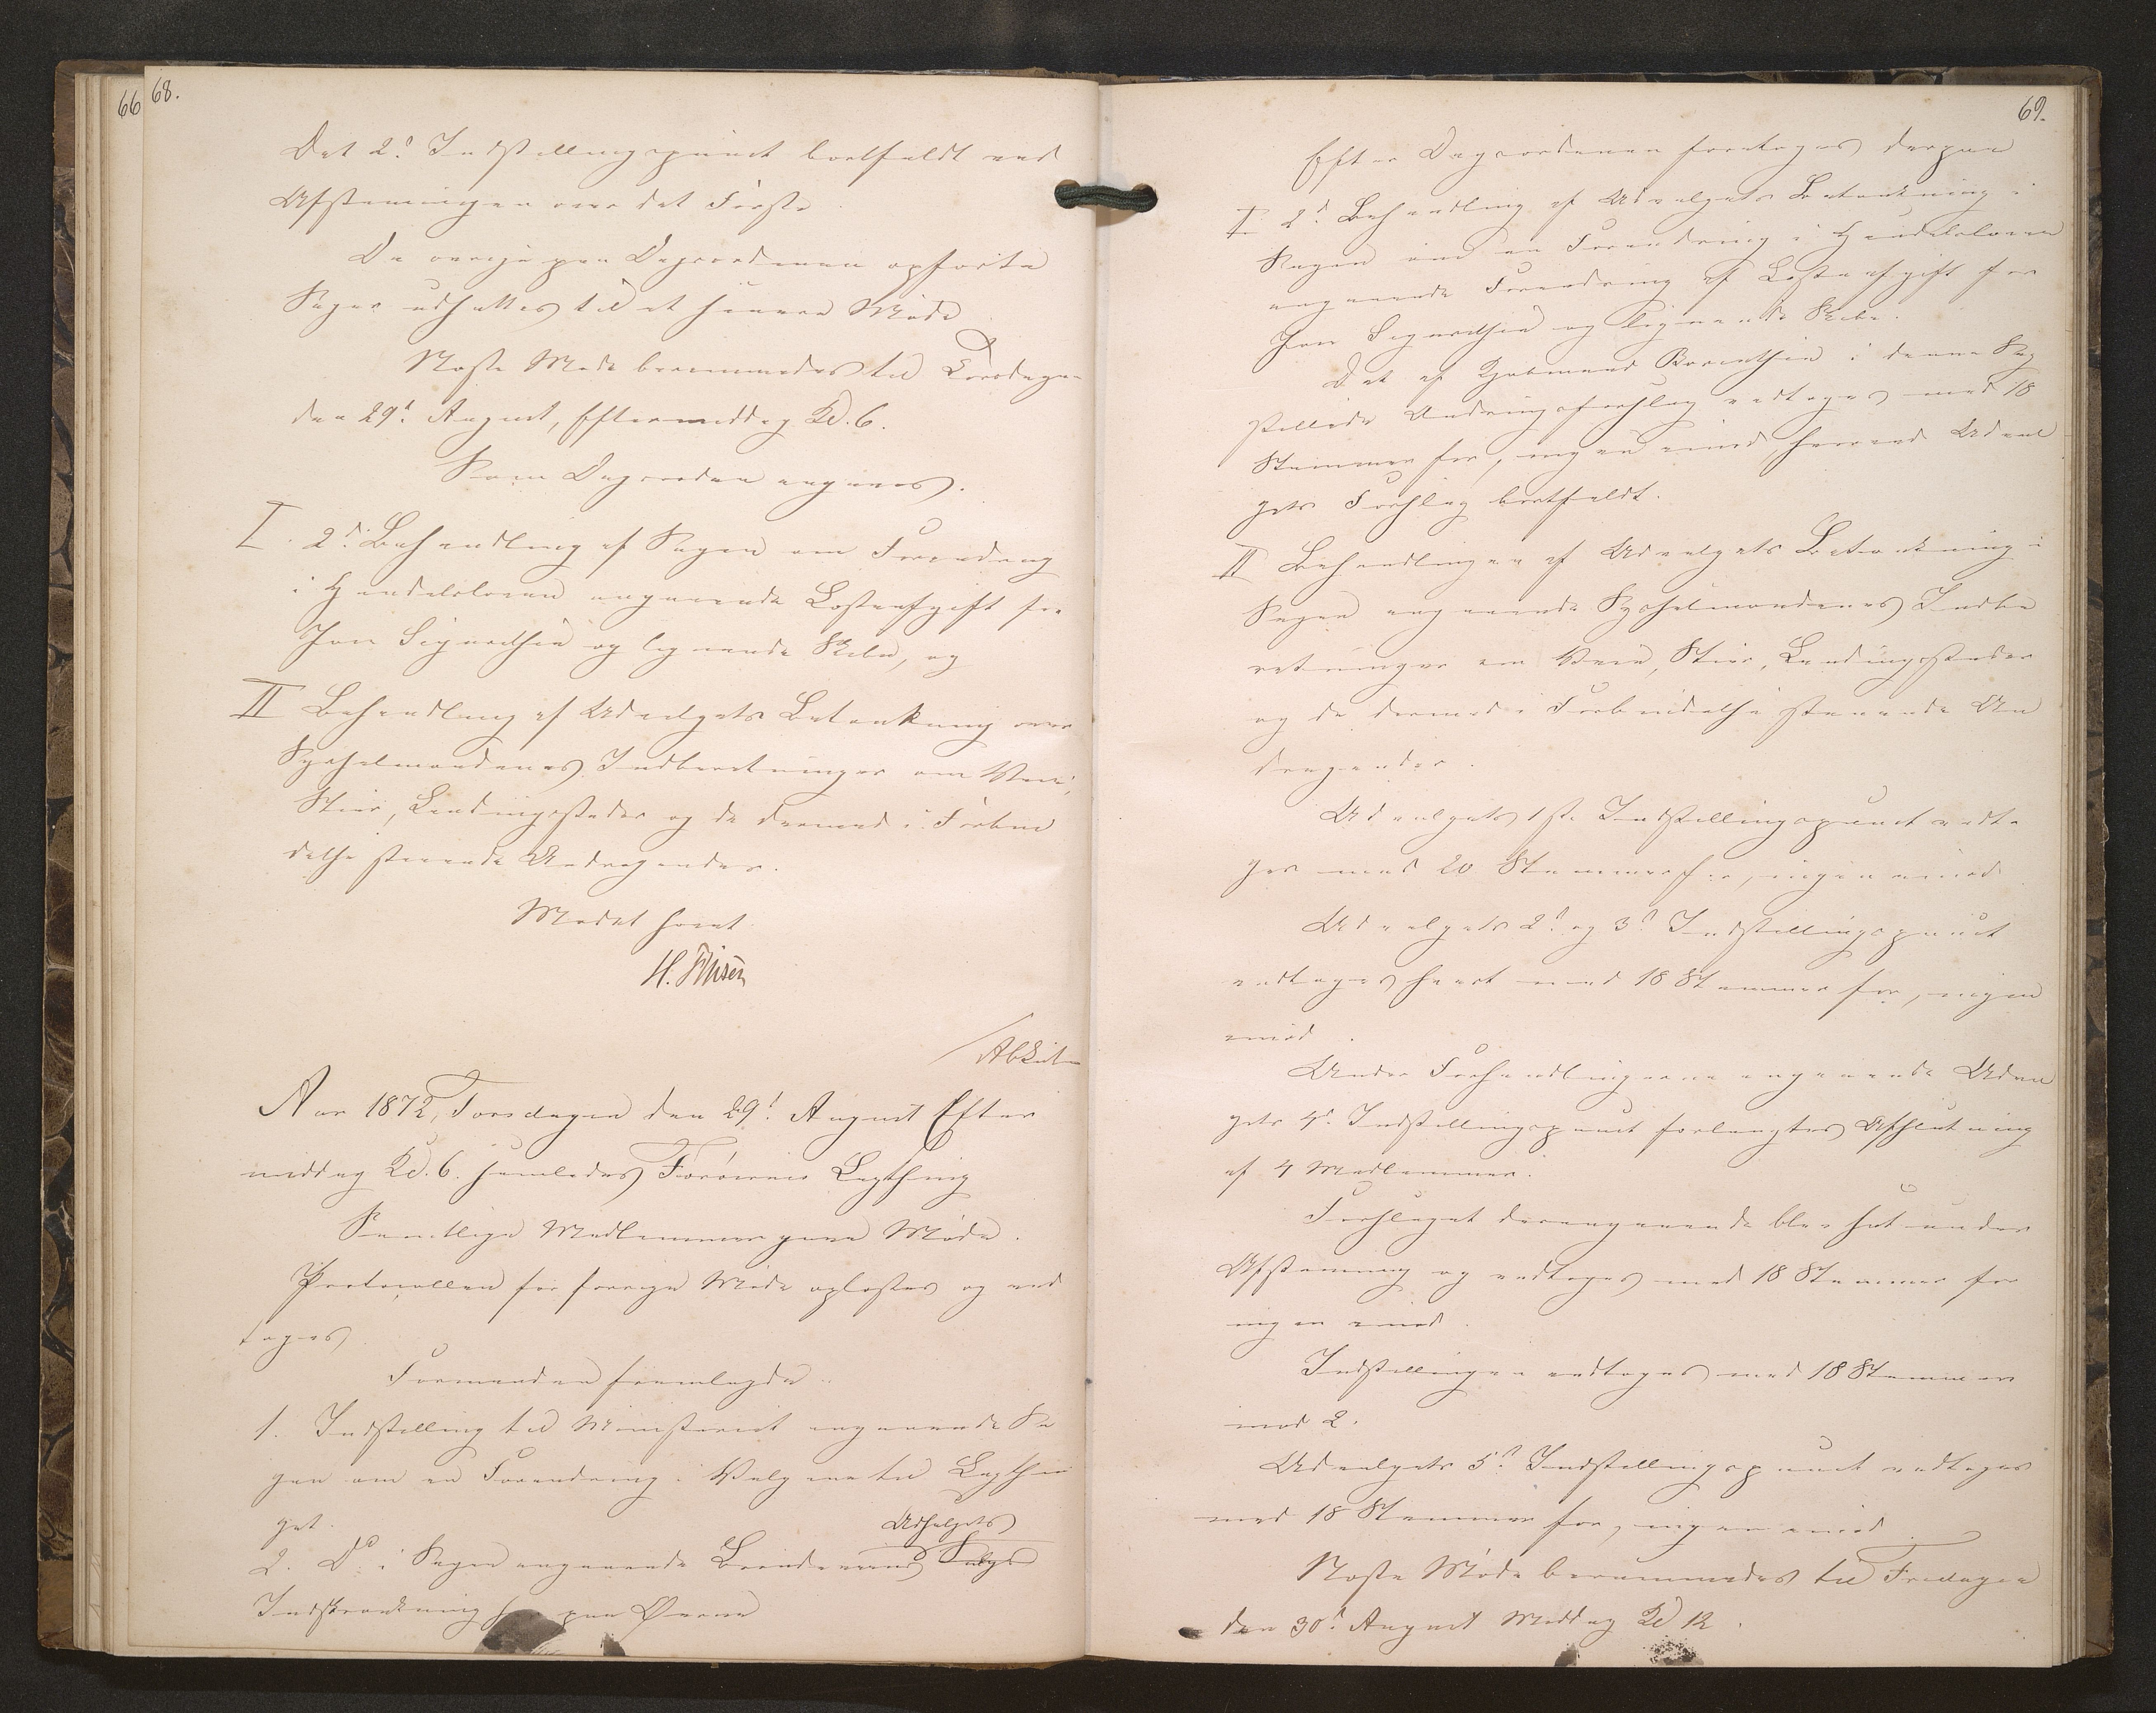 66 68.
Det 2d Indstillingspunct bortfaldt ved
Afstemningen over det Første
De øvrige paa Dagsordenen opførte
Sager udsattes til et senere Møde
Næste Møde berammedes til Torsdagen
den 29d August, Eftermiddag Kl. 6.
Som Dagsorden angaves.
I. 2d Behandling af Sagen om Forandring
i Handelsloven angaaende Lasteafgift for
Jon Sigurdsson og lignende Skibe, og
II Behandling af Udvalgets Betænkning over
Sysselmændenes Indberetninger om Veie,
Stier, Landingssteder og de dermed i Forbin
delse staaende Andragender.
Mødet hævet
H. Finsen
Aar 1872, Torsdagen den 29d August Efter
middag Kl. 6. samledes Færøernes Lagthing
Samtlige Medlemmer gave Møde.
Protocollen for forrige Møde oplæstes og ved
toges
Formanden fremlagde
1. Indstilling til Ministeriet angaaende Sa
gen om en Forandring i Valgene til Lagthin
get.
Udsalgets
2. Do i Sagen angaaende Brændeviins Salgs
Indskrænkning her paa Øerne
69.
Efter Dagsordenen foretoges derpaa
I. 2d Behandling af Udvalgets Betænkning i
Sagen om en Forandring i Handelsloven
angaaende Forandring af Lasteafgift for
Jon Sigurdsson og lignende Skibe.
Det af Kjøbmand in denne Sag
stillede Ændringsforslag vedtoges med 18
Stemmer for, ingen imod, hvorved Udval
gets Forslag bortfaldt.
II Behandlingen af Udvalgets Betænkning i
Sagen angaaende Sysselmændenes Indbe
retninger om Veie, Stier, Landingssteder
og de dermed i Forbindelse staaende An
dragender.
Udvalgets 1ste Indstillingspunct vedto
ges med 20 Stemmer for, ingen imod
Udvalgets 2d og 3d Indstillingspunct
vedtoges hvert med 18 Stemmer for, ingen
imod.
Under Forhandlingerne angaaende Udval
gets 4d Indstillingspunct forlangtes Afslutning
af 4 Medlemmer.
Forslaget derangaaende blev sat under
Afstemning og vedtoges med 18 Stemmer for
ingen imod.
Indstillingen vedtoges med 18 Stemmer
mod 2.
Udvalgets 5d Indstillingspunct vedtoges
med 18 Stemmer for, ingen imod.
Næste Møde berammedes til Fredagen
den 30d August Middag Kl 12.